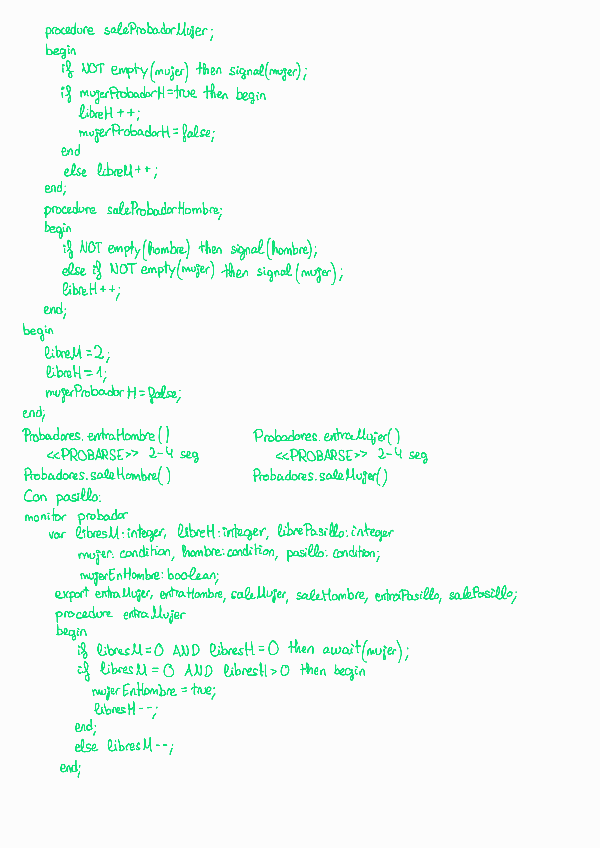 procedure saleProbadorMujer;
begin
if NOT empty(mujer) then signal(mujer);
if mujerProbadorH=true then begin
libreH++;
mujerProbadorH=false;
end
else libreM++;
end;
procedure saleProbadorHombre;
begin
if NOT empty(hombre) then signal(hombre);
else if NOT empty(mujer) then signal(mujer);
libreH++;
end;
begin
libreM=2;
libreH=1;
mujerProbadorH=false;
end;
Probadores.entraHombre() Probadores.entraMujer()
<<PROBARSE>> 2-4 seg <<PROBARSE>> 2-4 seg
Probadores.saleHombre() Probadores.saleMujer()
Con pasillo:
monitor probador
var libresM:integer, libreH:integer, librePasillo:integer
mujer:condition, hombre:condition, pasillo:condition;
mujerEnHombre:boolean;
export entraMujer, entraHombre, saleMujer, saleHombre, entraPasillo, salePasillo;
procedure entraMujer
begin
if libresM=0 AND libresH=0 then await(mujer);
if libresM=0 AND libresH>0 then begin
mujerEnHombre=true;
libresH--;
end;
else libresM--;
end;